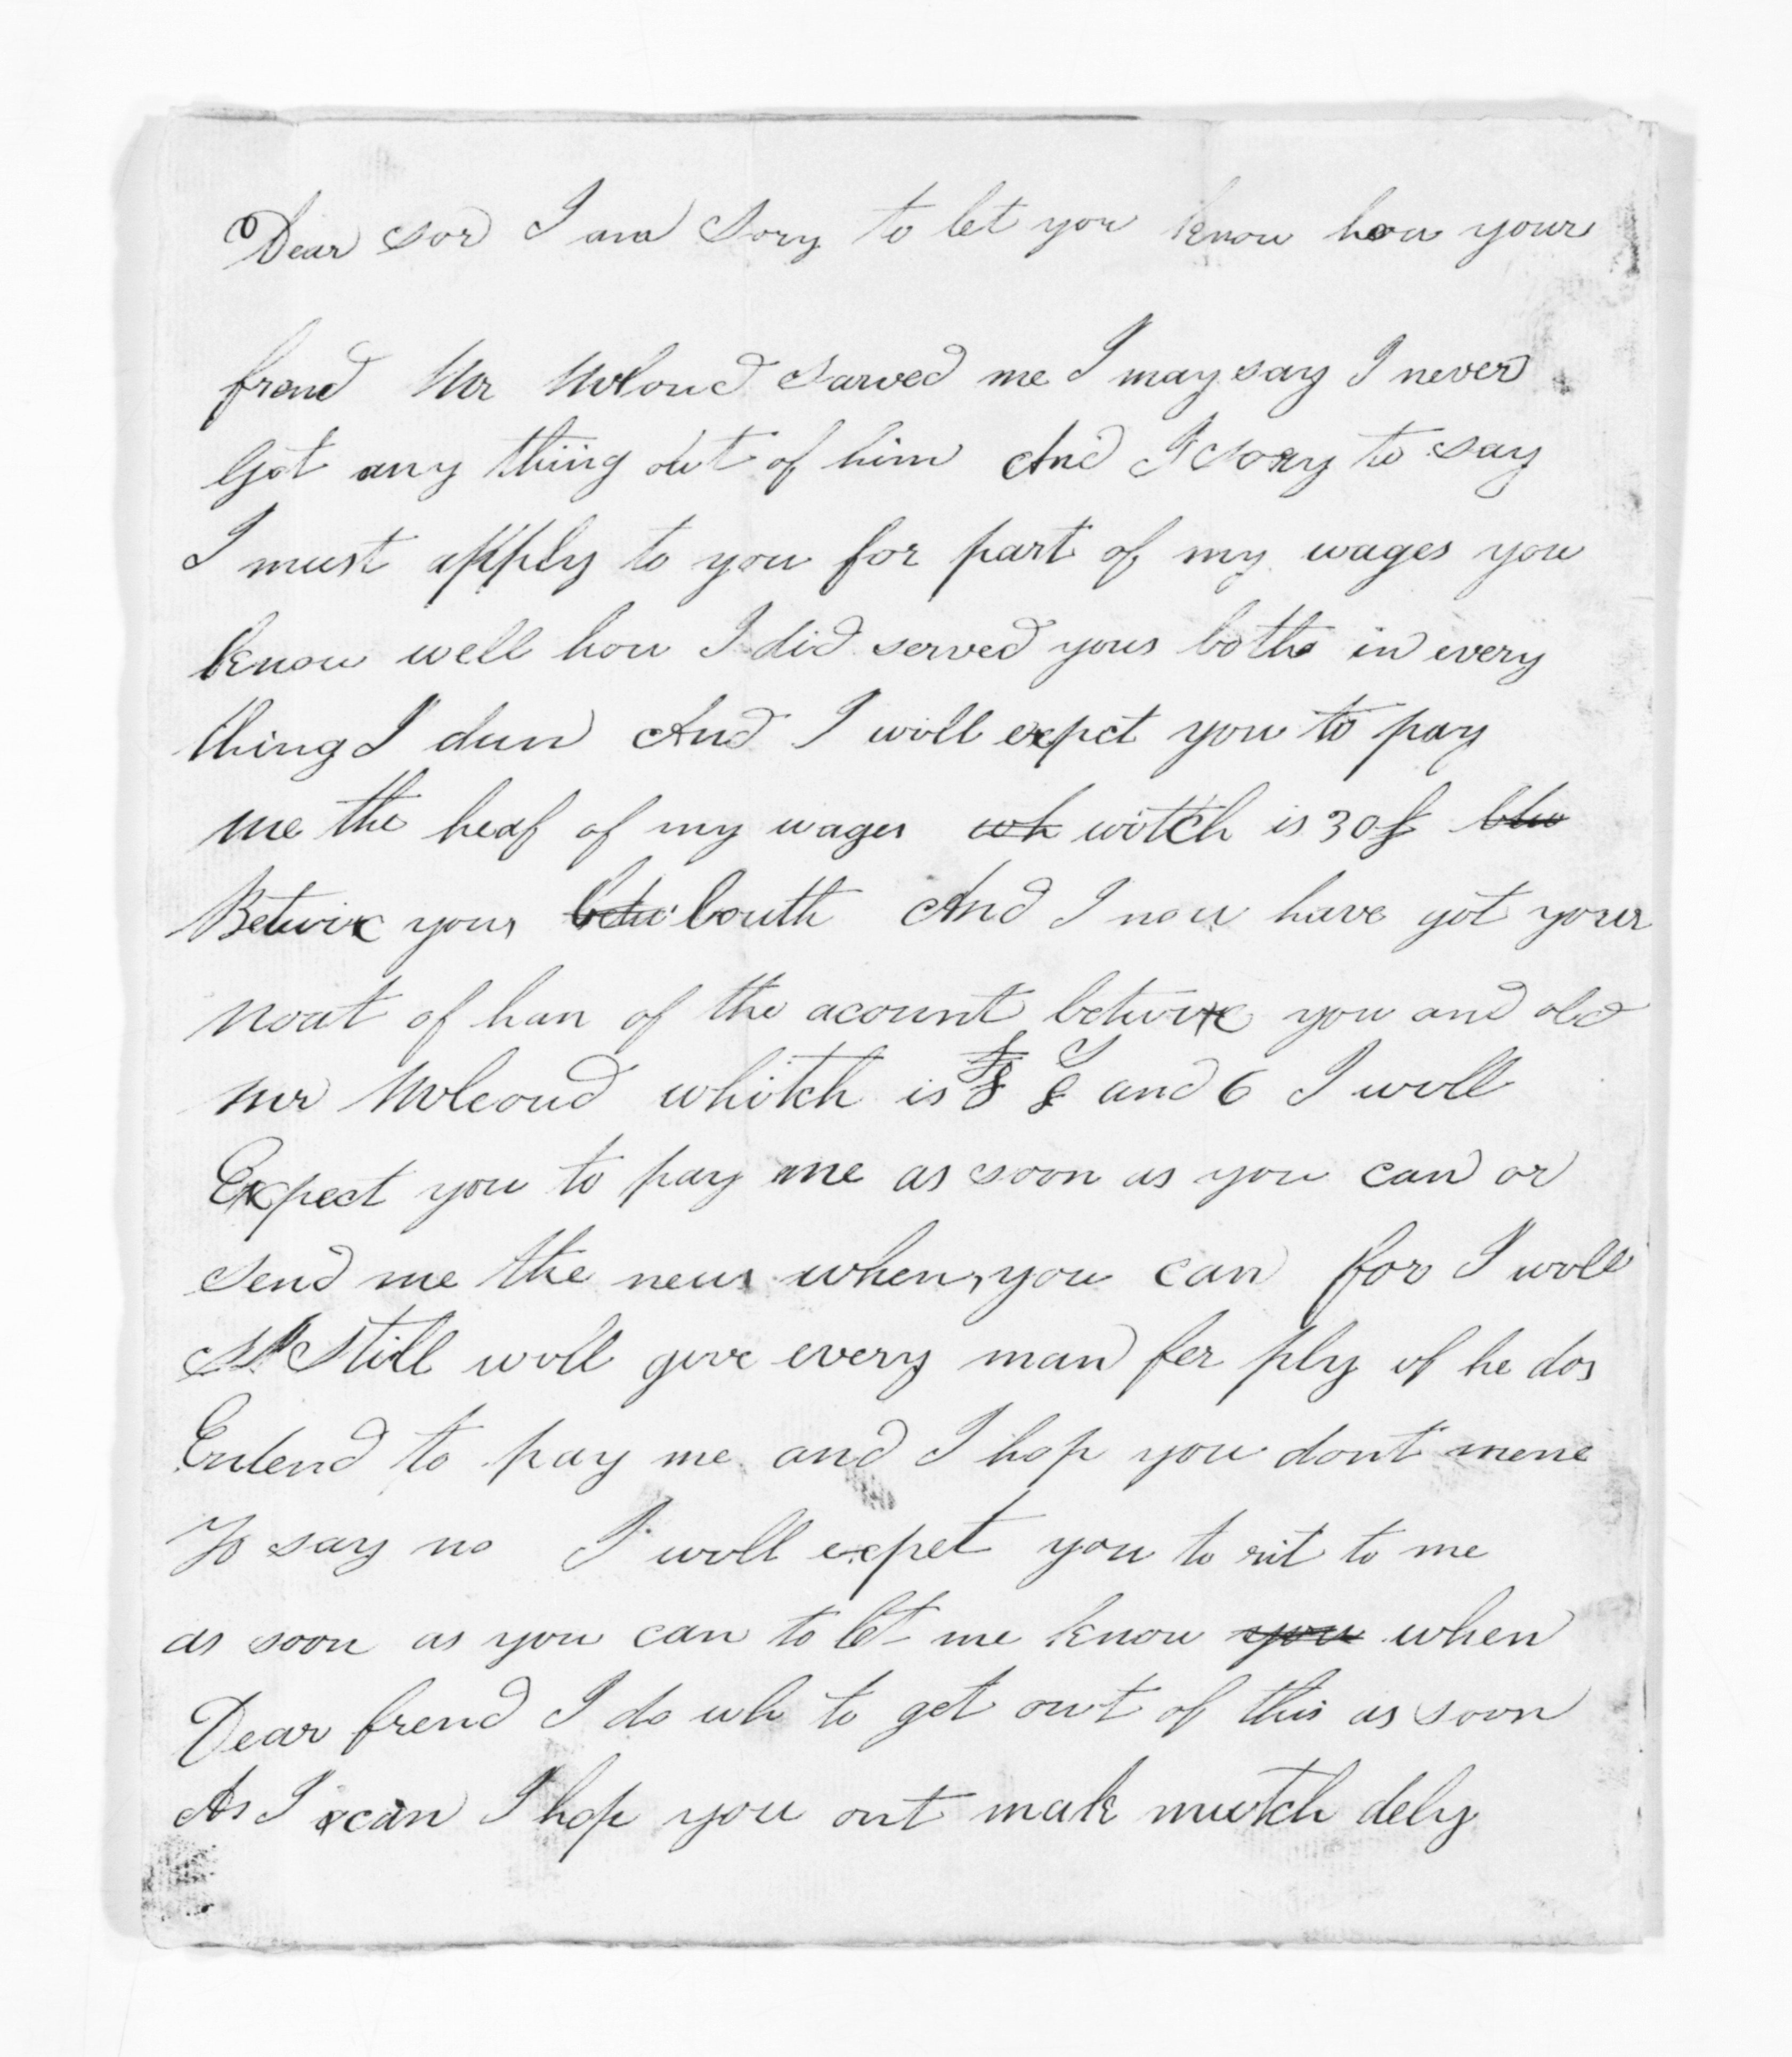 Dear sor I am Sory to let you know how your
frend Mr Mcloud sarved me I may say I never
Got any thiing out of him And I sory to say
I must apply to you for part of my wages you
know well how I did served yous both in every
thing I dun And I will expct you to pay
me the heaf of my wages wh witch is 30£
Betwix yous betw bouth And I now have got your
noat of han of the acount betwixe you and old
mr Mcleoud whitch is 8 and 6 I will
Expect you to pay me as soon as you can or
send me the news when you can for I woll
Still will give every man fer ply if he dos
Entend to pay me and I hop you dont mene
To say no I will expet you to rit to me
as soon as you can to let me know you when
Dear frend I do wh to get out of this as soon
As I can I hop you ont mak mutch dely